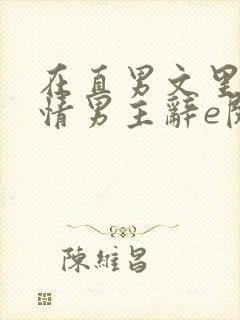 在直男文里
情男主辭e
陳維昌